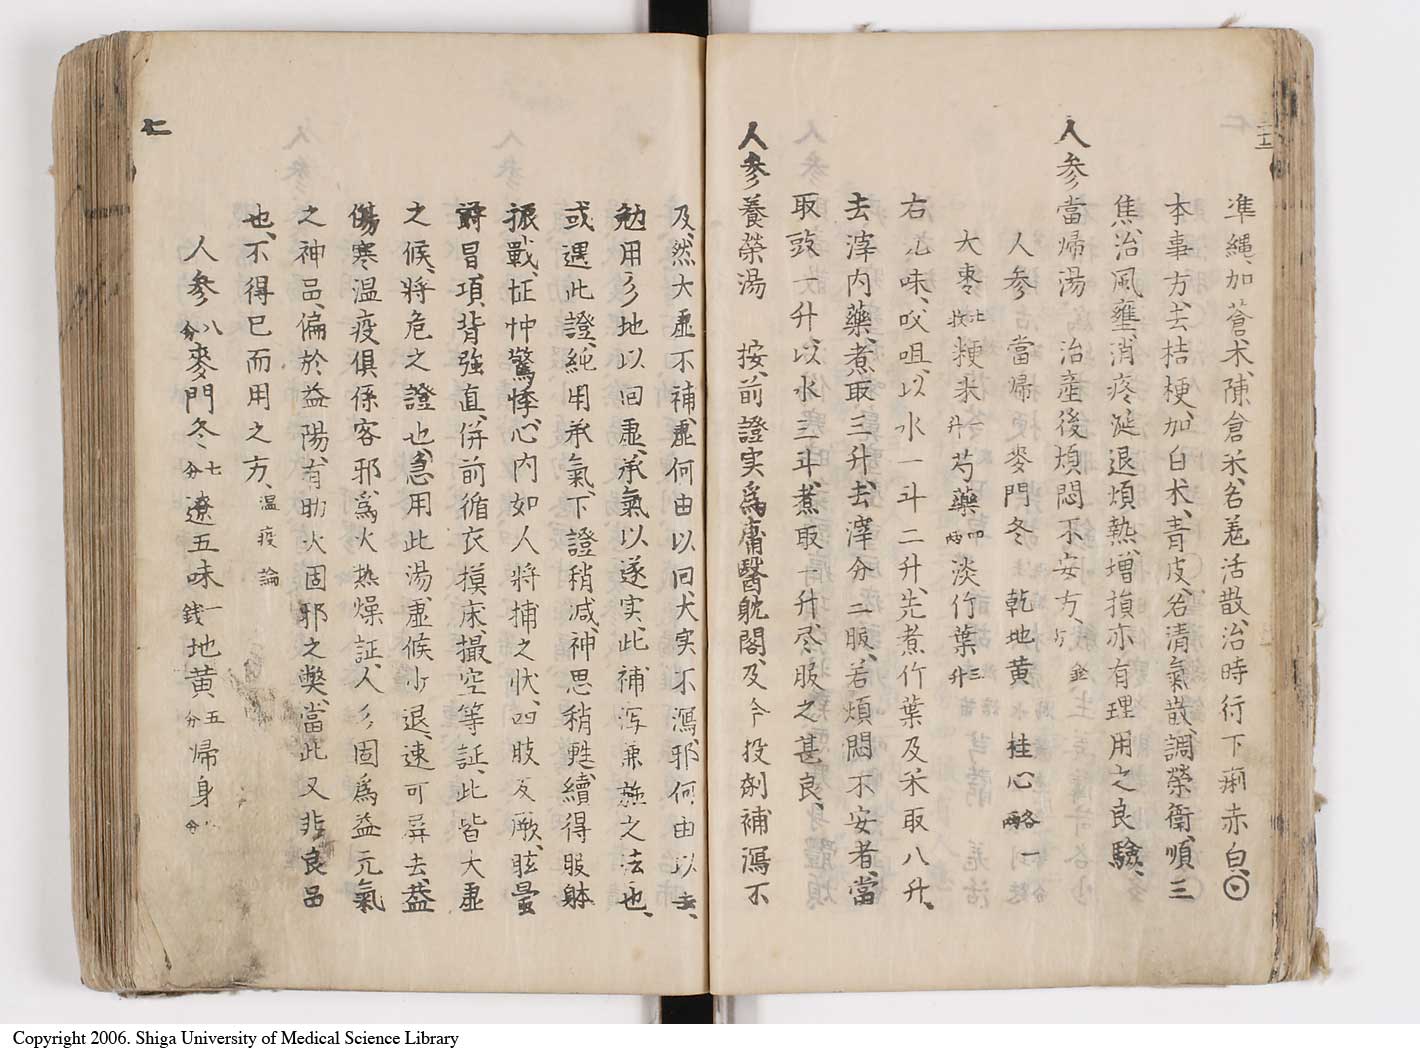 準縄、加蒼朮、陳倉米、名羗活散、治時行下痢赤白、
本事方、去桔梗、加白朮、青皮、名清氣散、調榮衛、順三
焦、治風壅、消痰涎、退煩熱、增損亦有理用之良驗、
人参當帰湯 治產後煩悶不安方、
人参 當帰 麥門冬 乾地黄 桂心各一兩
大棗 粳米一升 芍藥四兩 淡竹葉三升
右九味、㕮咀、以水一斗二升、先煮竹葉及米取八升、
去滓内藥、煮取三升、去滓分二服、若煩悶不安者、當
取豉一升、以水三斗、煮取一升、尽服之甚良、
人参養榮湯 按、前證実爲庸醫躭閣、及今投剤補瀉不
及、然大虚不補、虚何由以回、大実不瀉、邪何由以去、
勉用參地以回虚、承氣以逐実、此補瀉兼施之法也、
或遇此證、純用承氣、下證稍減、神思稍甦、續得服躰
振戰、怔忡驚悸、心内如人將捕之状、四肢反厥、眩暈
欝冒項、背强直、併前循衣摸床撮空等証、此皆大虚
之候、將危之證也、急用此湯、虚候少退、速可屏去、益
傷寒温疫俱係客邪爲火热燥証、人參固爲益元氣
之神品、偏於益陽、有助火固邪之弊、當此又非良品
也、不得已而用之方、温疫論
人参八分麥門冬七分遼五味一銭地黄五分帰身八分
七